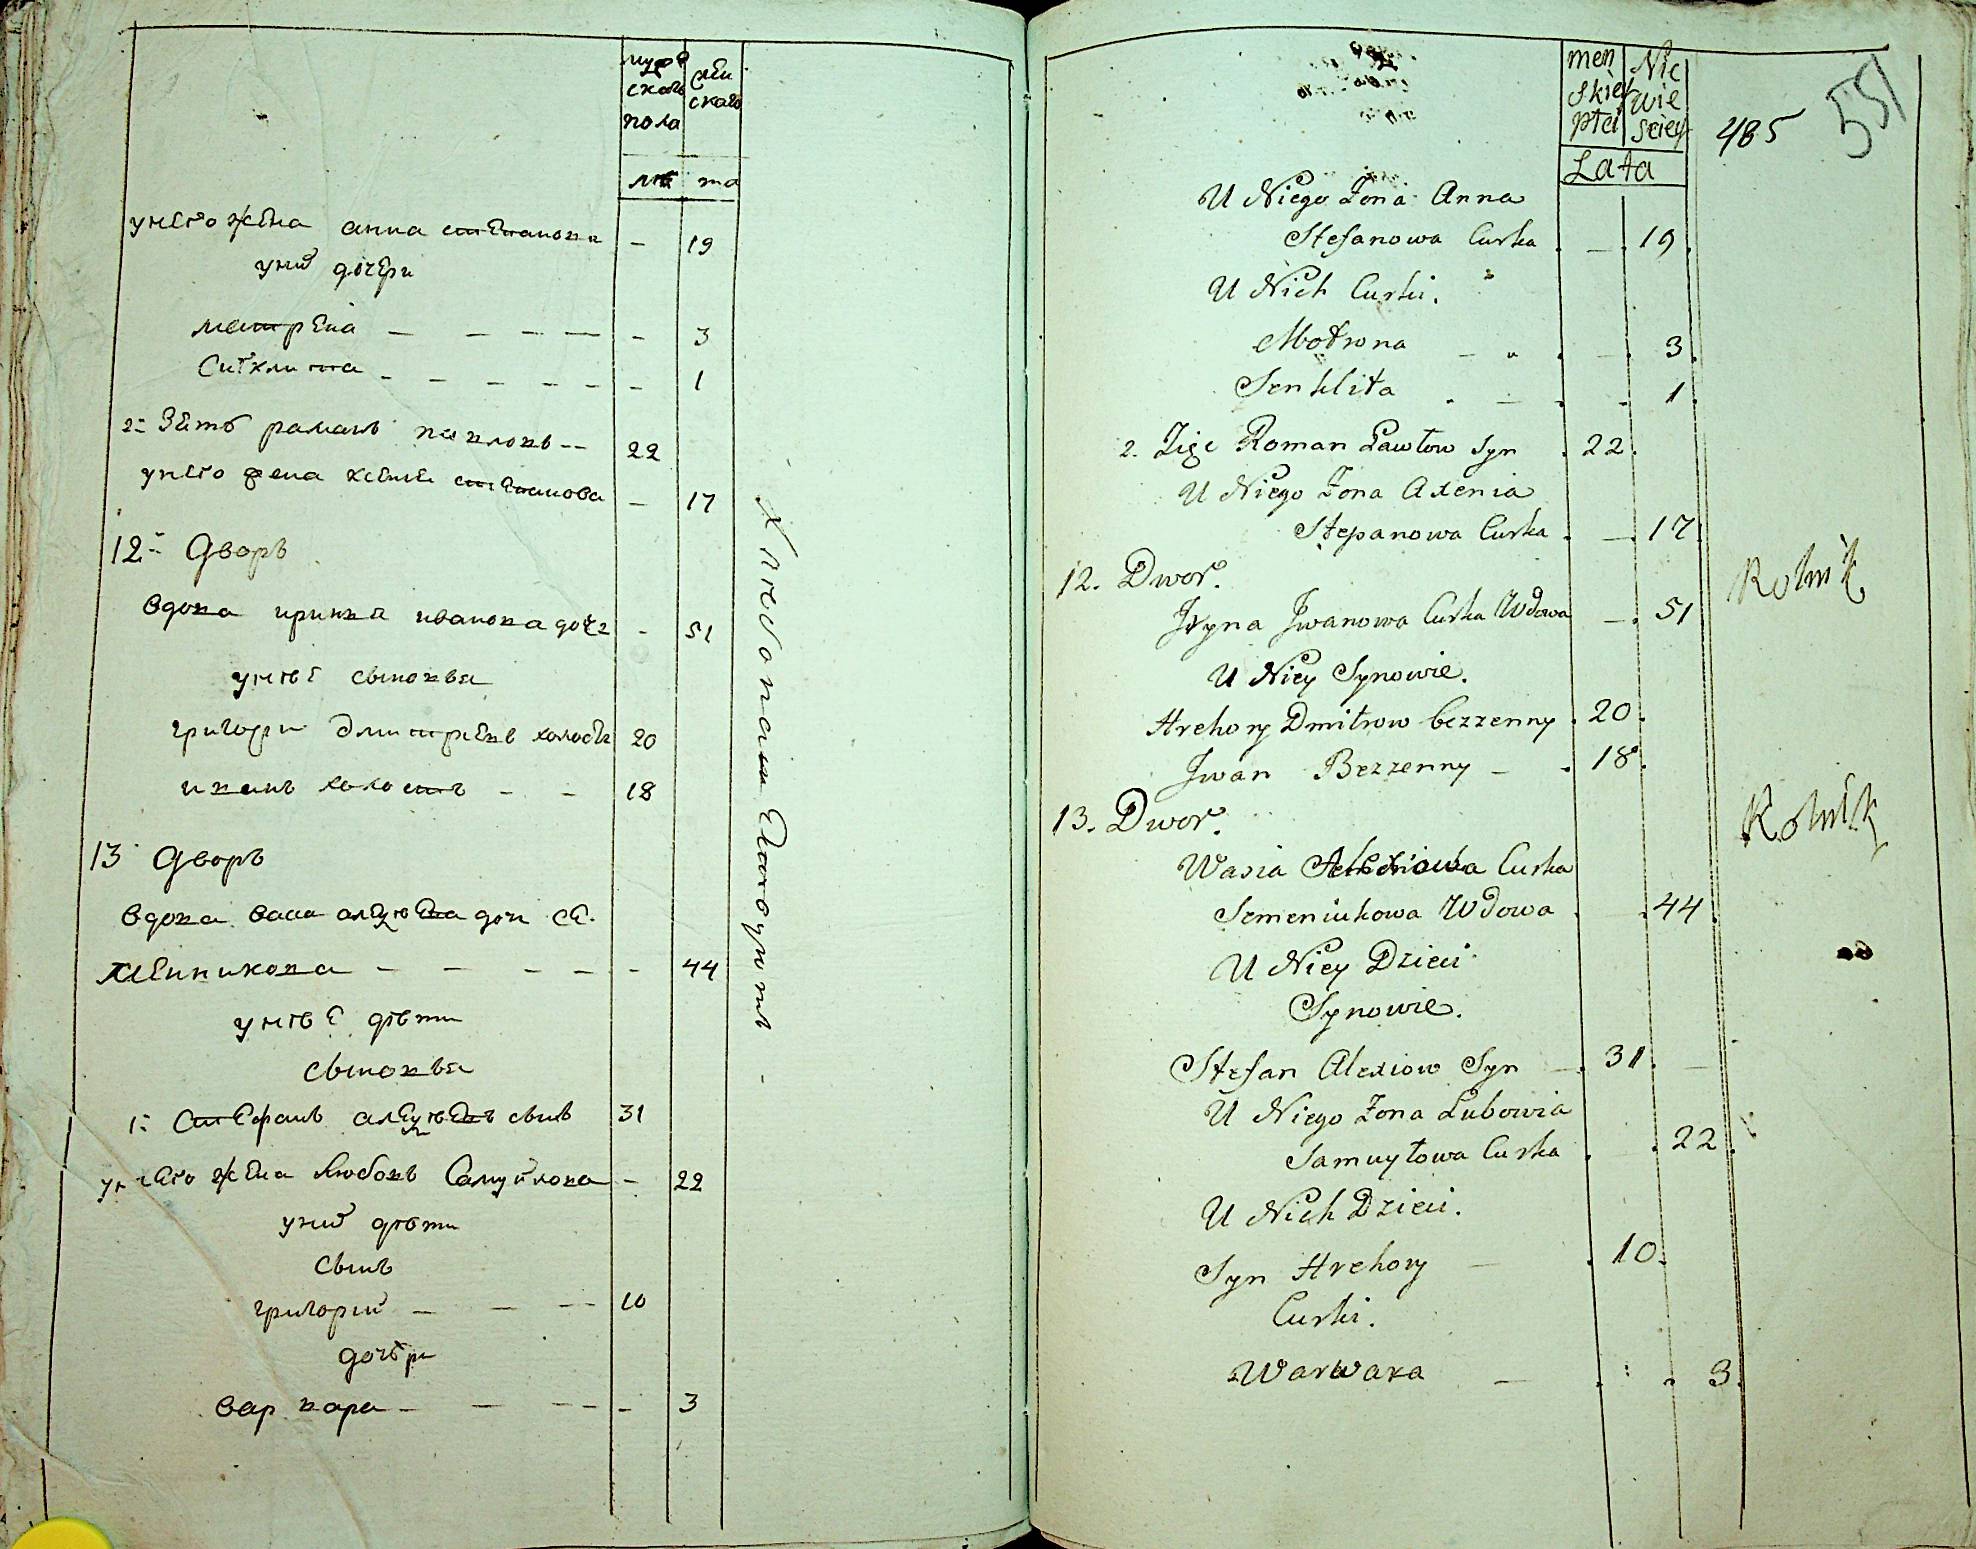 мужескаго пола
женскаго
лѣ та
унего жена анна степанова - 19
уних дочери
матрена - 3
Синклита - 1
2= Зять раманъ павловъ -- 22
унего жена ксения степанова - 17
12= Дворъ
вдова иринна иванова доч - 51
унѣе сыновья
григори дмитриевъ холостъ 20
иванъ холостъ - - 18
13 Дворъ
вдова васса алеѯѣева доч се-
менникова - - - - - 44
унѣе дѣти
сыновья
1= Степанъ алеѯѣевъ сынъ 31
унего жена любовь Самуйлова - 22
уних дѣти
сынъ
григорий - - -- 10
дочери
варвара - - -- - 3
Хлебопашествуютъ -
men skiey płci
Nie wie sciey
Lata
485
551
U Niego Zona Anna
Stefanowa Curka . - . 19.
U Nich Curki.
Motrona 3.
Senklita 1.
2. Zięc Roman Pawłow Syn . 22.
U Niego Zona Axenia
Stepanowa Curka . - . 17.
12. Dwor.
Rolnik
Jryna Jwanowa Curka Wdowa - . 51
U Niey Synowie.
Hrehory Dmitrow bezzenny . 20.
Jwan Bezzenny - . 18.
13. Dwor.
Rolnik
Wasia Curka
Semeniukowa Wdowa . 44.
U Niey Dzieci
Synowie.
Stefan Alexiow Syn - . 31.
U Niego Zona Lubowia
Samuyłowa Curka . . 22.
U Nich Dzieci.
Syn Hrehory - . 10.
Curki.
Warwara - . . 3.